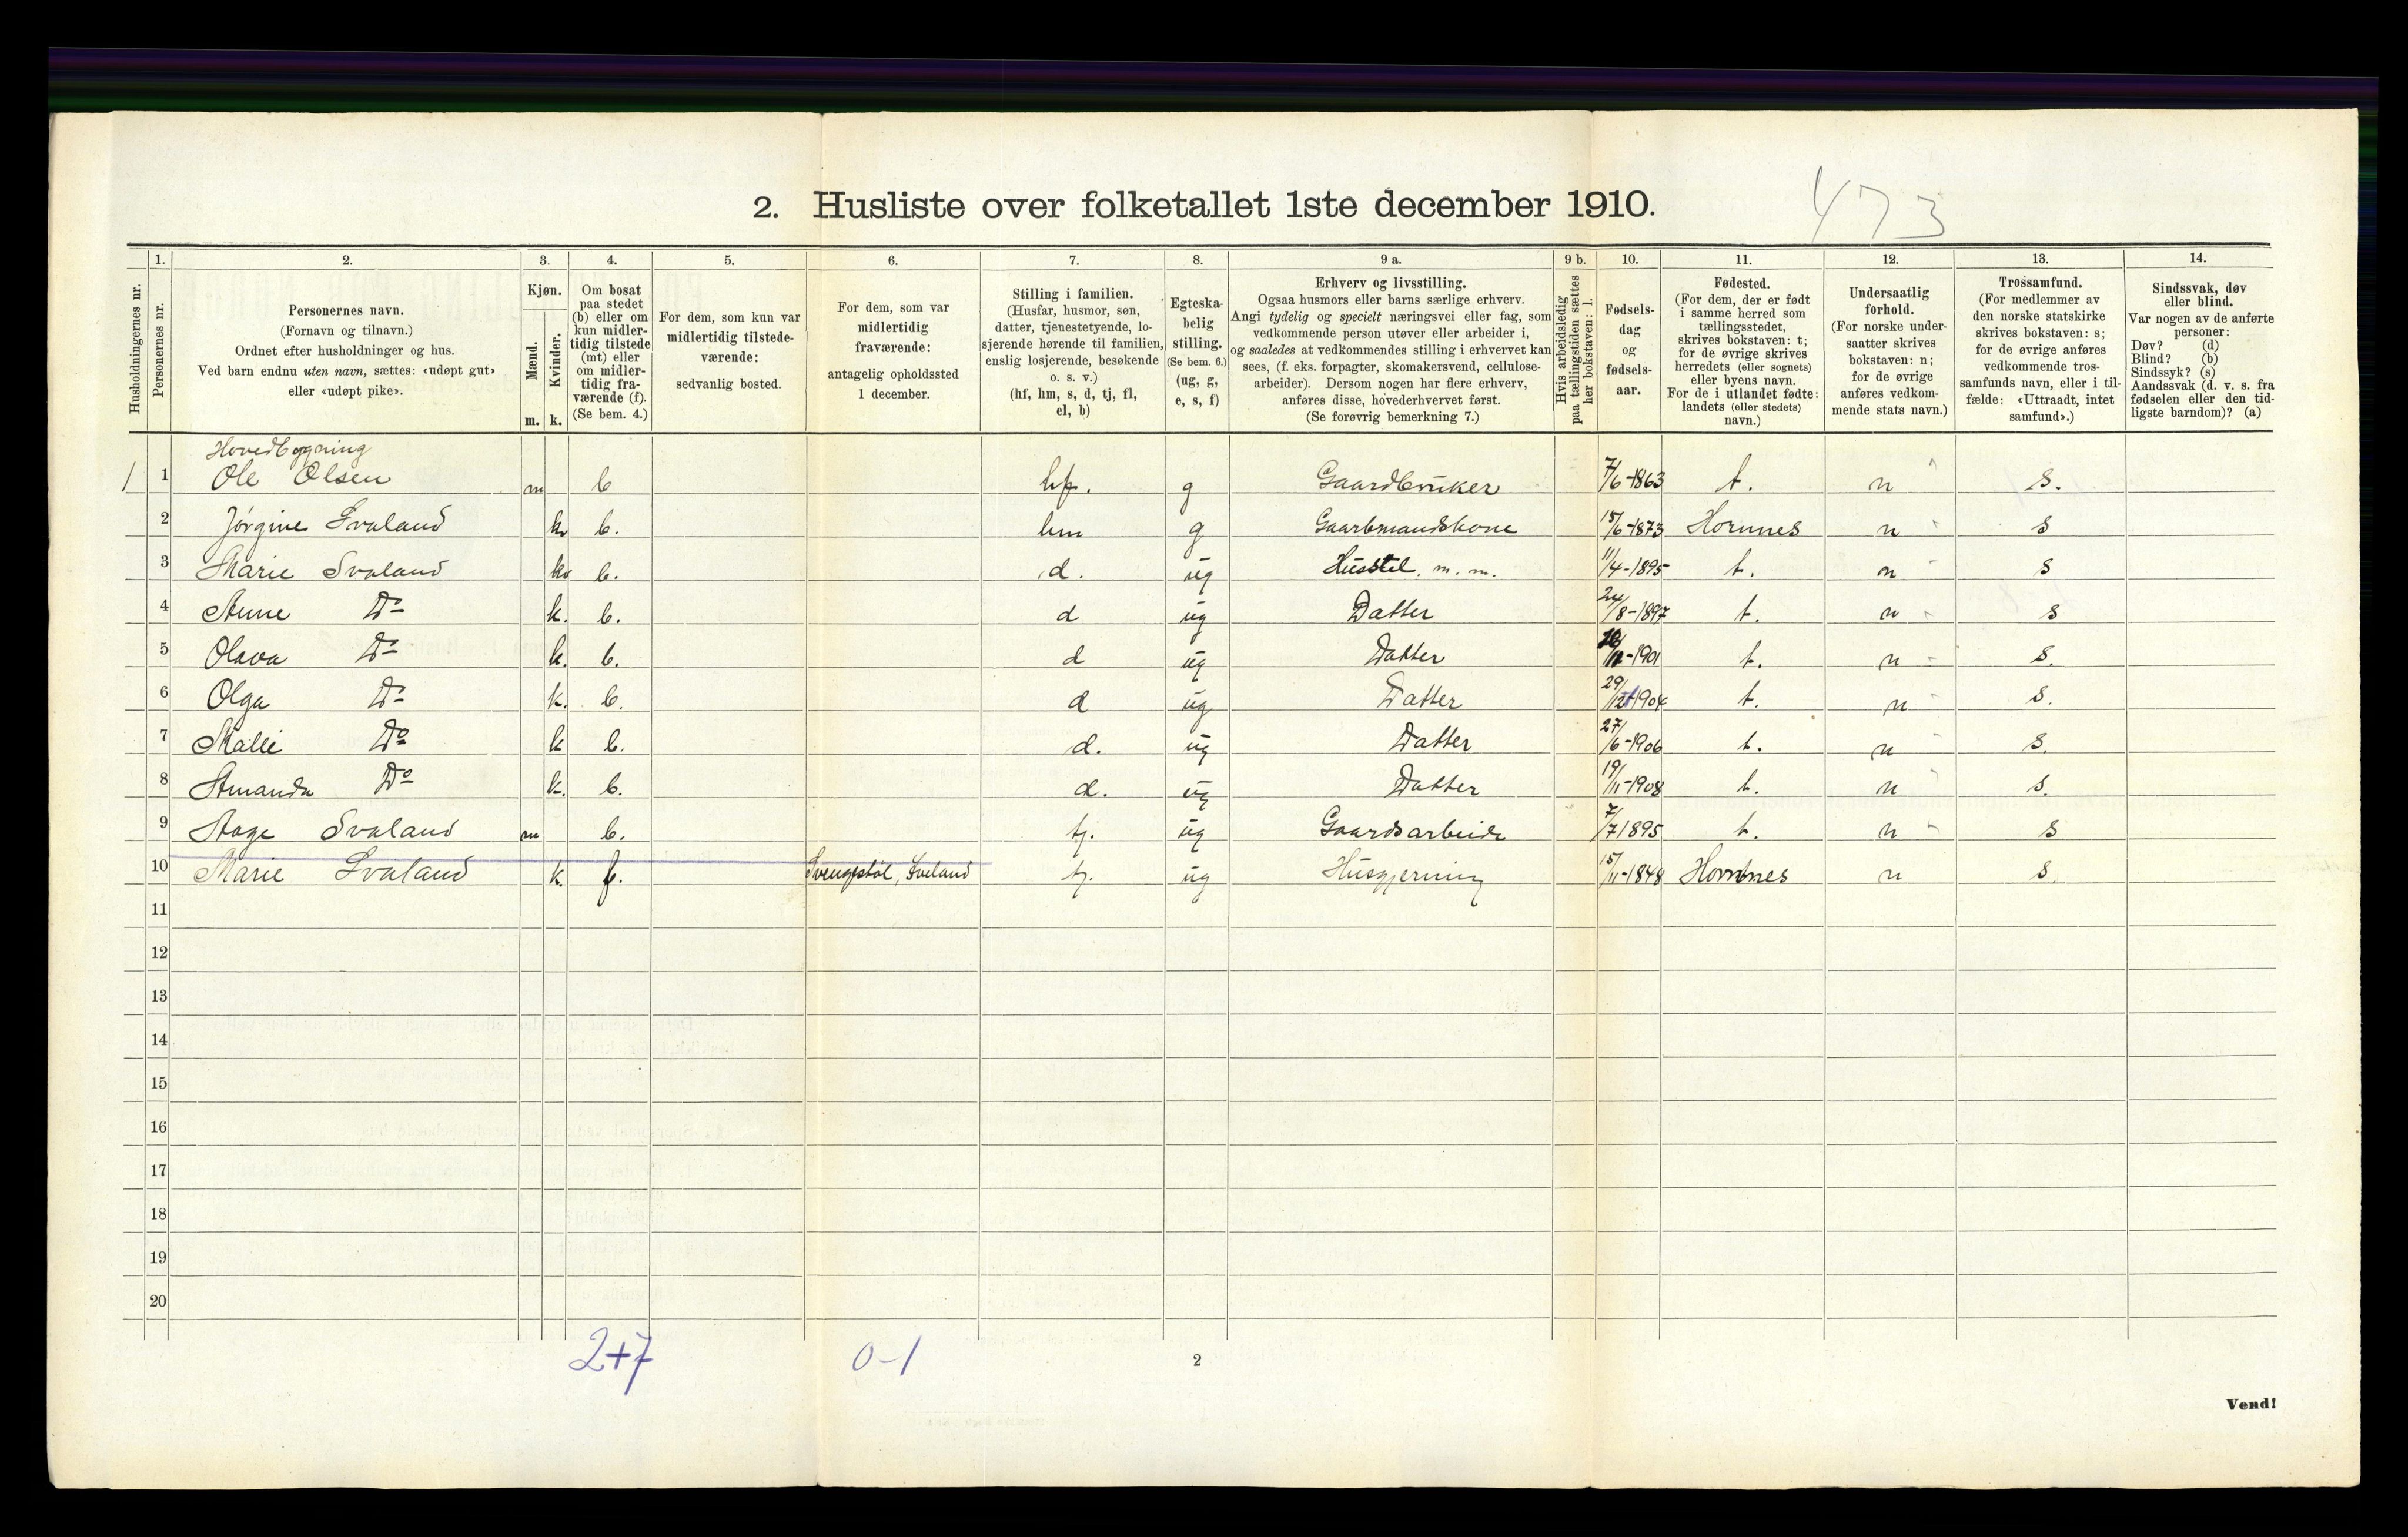 2. Husliste over folketallet 1ste december 1910.
473
Husholdningernes nr.
1. Personernes nr.
2. Personernes navn. (Fornavn og tilnavn.) Ordnet efter husholdninger og hus. Ved barn endnu uten navn, sættes: «udøpt gut» eller «udøpt pike».
3. Kjøn. Mænd. m. Kvinder. k.
4. Om bosat paa stedet (b) eller om kun midlertidig tilstede (mt) eller om midlertidig fraværende (f). (Se bem. 4.)
5. For dem, som kun var midlertidig tilstedeværende: sedvanlig bosted.
6. For dem, som var midlertidig fraværende: antagelig opholdssted 1 december.
7. Stilling i familien. (Husfar, husmor, søn, datter, tjenestetyende, losjerende hørende til familien, enslig losjerende, besøkende o. s. v.) (hf, hm, s, d, tj, fl, el, b)
8. Egteskabelig stilling. (Se bem. 6.) (ug, g, e, s, f)
9 a. Erhverv og livsstilling. Ogsaa husmors eller barns særlige erhverv. Angi tydelig og specielt næringsvei eller fag, som vedkommende person utøver eller arbeider i, og saaledes at vedkommendes stilling i erhvervet kan sees, (f. eks. forpagter, skomakersvend, cellulosearbeider). Dersom nogen har flere erhverv, anføres disse, hovederhvervet først. (Se forøvrig bemerkning 7.)
9 b. Hvis arbeidsledig paa tællingstiden sættes her bokstaven: l.
10. Fødselsdag og fødselsaar.
11. Fødested. (For dem, der er født i samme herred som tællingsstedet, skrives bokstaven: t; for de øvrige skrives herredets (eller sognets) eller byens navn. For de i utlandet fødte: landets (eller stedets) navn.)
12. Undersaatlig forhold. (For norske undersaatter skrives bokstaven: n; for de øvrige anføres vedkommende stats navn.)
13. Trossamfund. (For medlemmer av den norske statskirke skrives bokstaven: s; for de øvrige anføres vedkommende trossamfunds navn, eller i tilfælde: «Uttraadt, intet samfund».)
14. Sindssvak, døv eller blind. Var nogen av de anførte personer: Døv? (d) Blind? (b) Sindssyk? (s) Aandssvak (d. v. s. fra fødselen eller den tidligste barndom)? (a)
Hovedbygning
1 1 Ole Olsen m b hf. g Gaardbruker 7/6-1863 t. n s.
2 Jørgine Svaland kv b. hm g Gaarbmandskone 15/6-1873 Hornnes n s
3 Marie Svaland kv b. d. ug Husstel m. m. 11/4-1895 t. n s
4 Anne Do k. b. d ug Datter 24/8-1897 t. n s
5 Olava Do k. b. d ug Datter -1901 t. n s.
6 Olga Do k. b. d ug Datter 29/12-1904 t. n s.
7 Malli Do k b. d. ug Datter 27/6-1906 t. n s.
8 Amanda Do k. b. d. ug Datter 19/11-1908 t. n s.
9 Aage Svaland m b. tj. ug Gaardsarbeide 7/7 1895 t. n s
10 Marie Svaland k. f. Svengstøl, Svaland tj. ug Husgjerning 15/11-1848 Hornnes n s.
11
12
13
14
15
16
17
18
19
20
2+7 0-1
2
Vend!